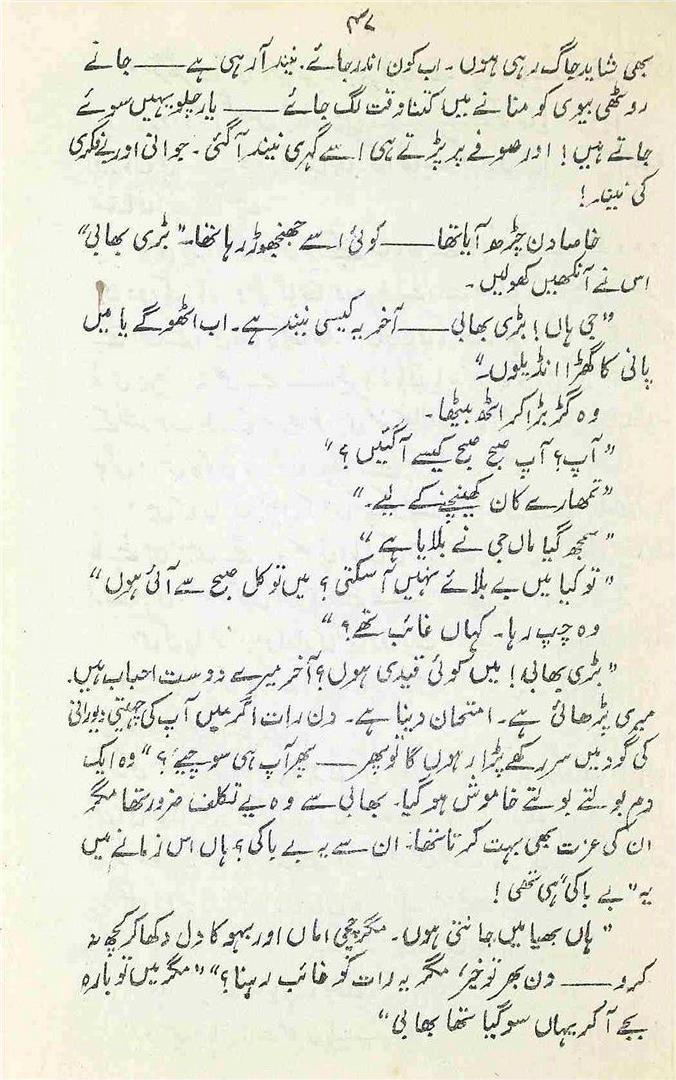 ۴۷
بھی شاید جاگ رہی ہوں۔ اب کون اندر جائے۔ نیند آ رہی ہے —— جانے
روٹھی بیوی کو منانے میں کتنا وقت لگ جائے —— یار چلو یہیں سوئے
جاتے ہیں! اور صوفے پر پڑتے ہی اسے گہری نیند آ گئی۔ جوانی اور بے فکری
کی نیند!
خاصا دن چڑھ آیا تھا —— کوئی اسے جھنجھوڑ رہا تھا۔ "بڑی بھابی"
اس نے آنکھیں کھولیں۔
"جی ہاں! بڑی بھابی —— آخر یہ کیسی نیند ہے۔ اب اٹھو گے یا میں
پانی کا گھڑا انڈیلوں۔"
وہ گڑبڑا کر اٹھ بیٹھا۔
"آپ؟ آپ صبح صبح کیسے آ گئیں؟"
"تمھارے کان کھینچنے کے لیے۔"
"سمجھ گیا ماں جی نے بلایا ہے"
"تو کیا میں بے بلائے نہیں آ سکتی؟ میں تو کل صبح سے آئی ہوں"
وہ چپ رہا۔ کہاں غائب تھے؟"
"بڑی بھابی! میں کوئی قیدی ہوں؟ آخر میرے دوست احباب ہیں۔
میری پڑھائی ہے۔ امتحان دینا ہے۔ دن رات اگر میں آپ کی چہیتی دیورانی
کی گود میں سر رکھے پڑا رہوں گا تو پھر —— پھر آپ ہی سوچیے؟" وہ ایک
دم بولتے بولتے خاموش ہو گیا۔ بھابی سے وہ بے تکلف ضرور تھا مگر
ان کی عزت بھی بہت کرتا تھا۔ ان سے یہ بے باکی؟ ہاں اس زمانے میں
یہ "بے باکی" ہی تھی!
"ہاں بھیا میں جانتی ہوں۔ مگر چچی اماں اور بہو کا دل دکھا کر کچھ نہ
کرو —— دن بھر تو خیر، مگر یہ رات کو غائب رہنا؟" "مگر میں تو بارہ
بجے آ کر یہاں سو گیا تھا بھابی"